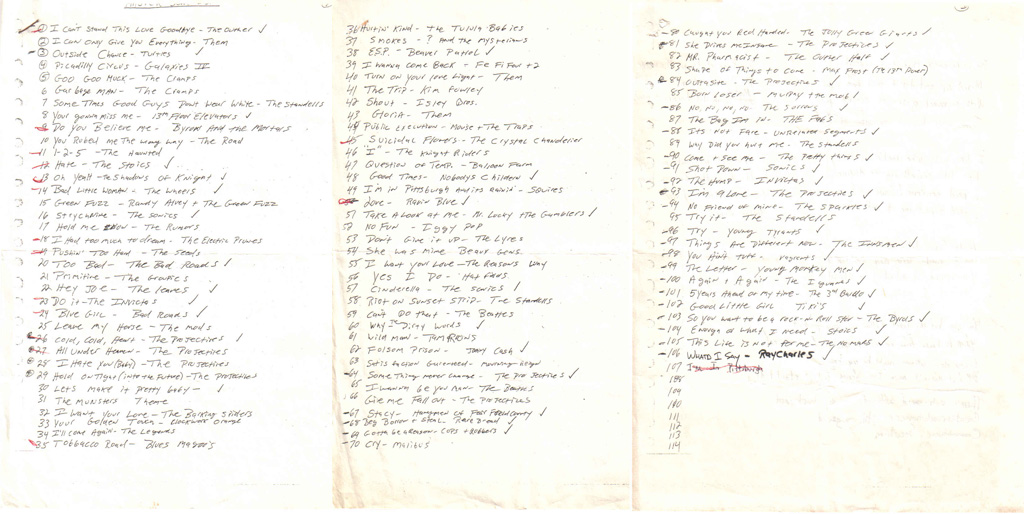 1 I Can't Stand This Love Goodbye - The Others ✓
2 I Can Only Give You Everything - Them
3 Outside Chance - Turtles ✓
4 Picadilly Circus - Galaxies IV
5 Goo Goo Muck - The Cramps
6 Garbage Man - The Cramps
7 Some Times Good Guys Don't Wear White - The Standells
8 Your gonna miss me - 13th Floor Elevators ✓
9 Do You Believe me - Byron And the Mortars
10 You Robed Me The wrong way - The Road
11 1-2-5 - The Haunted
12 Hate - The Stoics ✓
13 Oh Yeah - The Shadows of Knight ✓
14 Bad Little Woman - The Wheels ✓
15 Green Fuzz - Randy Alvey + The Green Fuzz
16 Strychnine - The Sonics ✓
17 Hold me Now - The Rumors
18 I Had too much to dream - The Electric Prunes
19 Pushin' Too Hard - The Seeds
20 Too Bad - The Bad Roads ✓
21 Primitive - The Groupies
22 Hey Joe - The Leaves ✓
23 Do it - The Invictas ✓
24 Blue Girl - Bad Roads ✓
25 Leave My House - The Mods
26 Cold, Cold, Heart - The Projectives ✓
27 All Under Heaven - The Projectives
28 I Hate You (Baby) - The Projectives
29 Hold on Tight (into the Future) - The Projectives
30 Lets make it pretty baby - ✓
31 The Munsters Theme
32 I Want Your Love - The Barking Spiders
33 Your Golden Touch - Clockwork Orange
34 I'll Come Again - The Legends
35 Tobbacco Road - Blues Magoo's
36 Hurtin' Kind - The Tulula Babies
37 Smokes - ? And the Mysterians
38 E.S.P. - Beaver Patrol ✓
39 I Wanna Come Back - Fe Fi Four + 2
40 Turn on your love light - Them
41 The Trip - Kim Fowley
42 Shout - Isley Bros.
43 Gloria - Them
44 Public Execution - Mouse + The Traps
45 Suicidal Flowers - The Crystal Chandelier
46 "I" - The Knight Riders
47 Question of Temp. - Balloon Farm
48 Good Times - Nobodys Children ✓
49 I'm in Pittsburgh And its Rainin - Squires
50 Love - Rain Blue ✓
51 Take A Look at Me - Mr Lucky + The Gamblers ✓
52 No Fun - Iggy Pop
53 Don't Give it up - The Lyres
54 She was Mine Beaux Gens.
55 I want your Love - The Reasons Way
56 Yes I Do -
57 Cinderella - The Sonics ✓
58 Riot on Sunset Strip - The Standells
59 Can't Do That - The Beatles
60 Why The Dirty Words ✓
61 Wild Man - Tamrons
62 Folsom Prison - Johnny Cash ✓
63 Satisfaction Guaranteed - Mourning Reign
64 Some Things Never Change - The Projectives ✓
65 I Wanna be you Man - The Beatles
66 Give me Fall Out - The Projectives
67 Stacy - ✓
68 Beg Borrow + Steal - Rare Breed ✓
69 Gotta be a Reason - Cops + Robbers ✓
70 Cry - Malibus
80 Caught You Red Handed - The Jolly Green Giants ✓
81 She Drives Me Insane - The Projectives ✓
82 Mr. Pharmacist - The Other Half ✓
83 Shape of Things to Come - Max Frost
84 Outtasite - The Projectives ✓
85 Born Loser - Murphy + The Mob ✓
86 No, No, No, No - The Sorrows ✓
87 The Bag I'm in - The Fabs
88 Its Not Fair - Unrelated Segments ✓
89 Why Did You Hurt me - The Standells
90 Come + See me - The Pretty Things ✓
91 Shot Down - Sonics ✓
92 The Hump - Invictas ✓
93 I'm Alone - The Projectives ✓
94 No Friend of mine - The Sparkles ✓
95 Try it - The Standells
96 Try - Young Tyrants ✓
97 Things Are Different Now - The Innsmen ✓
98 You Ain't Tuff - Vagrants ✓
99 The Letter - Young Monkey Men ✓
100 Again + Again - The Iguanas ✓
101 5 Years Ahead of My Time - The 3rd Bardo ✓
102 Good Little Girl - Tiki's ✓
103 So you Want to be a Rock n Roll Star - The Byrds ✓
104 Enough of What I Need - Stoics ✓
105 This Life is Not for me - The Nomads ✓
106 What'd I Say - Ray Charles ✓
107 I'm in Pittsburgh
108
109
110
111
112
113
114